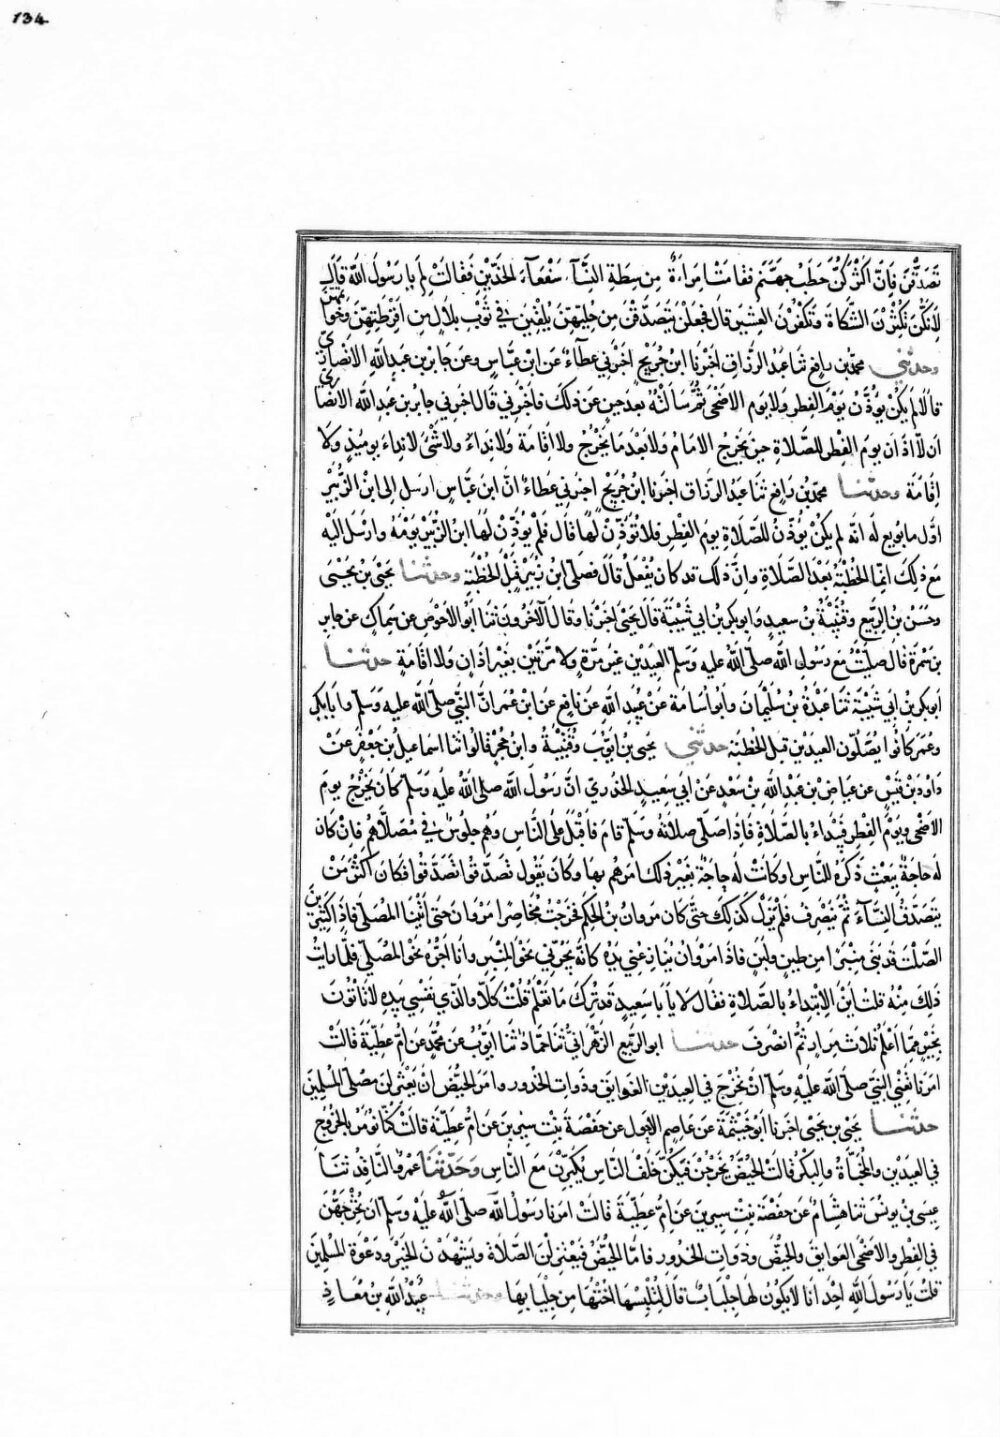 134
تَصَدَّقْنَ فَاِنَّ اَكْثَرَكُنَّ حَطَبُ جَهَنَّمَ فقامَتْ امرَاَةٌ مِن سِطَةِ النِّسَآءِ سَفْعَآءُ الخَدَّيْنِ فَقَالَتْ لِمَ يا رَسُولَ اللهِ قَالَ
لِاَنَّكُنَّ تُكْثِرْنَ الشَّكَاةَ وَتَكْفُرْنَ العَشِيرَ قال فجَعَلْنَ يَتَصَدَّقْنَ مِن حُلِيِّهِنَّ يُلْقِينَ فِي ثَوْبِ بِلَالٍ مِن اَقْرِطَتِهِنَّ وَخَوَاتِمِهِنَّ
وحدثني محمد بن رافع ثنا عبد الرزاق اخبرنا ابن جريج اخبرني عطاءٌ عن ابن عباس وعن جابر بن عبد الله الانصاري
قالا لم يكن يُؤَذَّنُ يوم الفطر ولا يوم الاضحى ثم سالته بعد حين عن ذلك فاخبرني قال اخبرني جابر بن عبد الله الانصاري
ان لا اذان يوم الفطر للصلاة حين يخرج الامام ولا بعد ما يخرج ولا اقامة ولا نداء ولا شيء لا نداء يومئذ ولا
اقامة وحدثنا محمد بن رافع ثنا عبد الرزاق اخبرنا ابن جريج اخبرني عطاء ان ابن عباس ارسل الى ابن الزبير
اول ما بويع له انه لم يكن يؤذن للصلاة يوم الفطر فلا تؤذن لها قال فلم يؤذن لها ابن الزبير يومه وارسل اليه
مع ذلك انما الخطبة بعد الصلاة وان ذلك قد كان يفعل قال فصلى ابن زبير قبل الخطبة وحدثنا يحيى بن يحيى
وحسن بن الربيع وقتيبة بن سعيد وابو بكر بن ابي شيبة قال يحيى اخبرنا وقال الآخرون ثنا ابو الاحوص عن سماك عن جابر
بن سمرة قال صليت مع رسول الله صلى الله عليه وسلم العيدين غير مرة ولا مرتين بغير اذان ولا اقامة حدثنا
ابو بكر بن ابي شيبة ثنا عبدة بن سليمان وابو اسامة عن عبيد الله عن نافع عن ابن عمر ان النبي صلى الله عليه وسلم وابا بكر
وعمر كانوا يصلون العيدين قبل الخطبة حدثني يحيى بن ايوب وقتيبة وابن حجر قالوا ثنا اسماعيل بن جعفر عن
داود بن قيس عن عياض بن عبد الله بن سعد عن ابي سعيد الخدري ان رسول الله صلى الله عليه وسلم كان يخرج يوم
الاضحى ويوم الفطر فيبداء بالصلاة فاذا صلى صلاته وسلم قام فاقبل على الناس وهم جلوس في مصلاهم فان كان
له حاجة ببعث ذكره للناس او كانت له حاجة بغير ذلك امرهم بها وكان يقول تصدقوا تصدقوا فكان اكثر من
يتصدق النسآء ثم ينصرف فلم يزل كذلك حتى كان مروان بن الحكم فخرجت مخاصرا مروان حتى اتينا المصلى فاذا كثير بن
الصلت قد بنى منبرا من طين ولبن فاذا مروان ينازعني يده كانه يجرني نحو المنبر وانا اجره نحو المصلى فلما رايت
ذلك منه قلت اين الابتداء بالصلاة فقال لا يا با سعيد قد ترك ما تعلم قلت كلا والذي نفسي بيده لا تاتون
بخير مما اعلم ثلاث مرار ثم انصرف حدثنا ابو الربيع الزهراني ثنا حماد ثنا ايوب عن محمد عن ام عطية قالت
امرنا تعني النبي صلى الله عليه وسلم ان نخرج في العيدين العواتق وذوات الخدور وامر الحيض ان يعتزلن مصلى المسلمين
حدثنا يحيى بن يحيى اخبرنا ابو خيثمة عن عاصم الاحول عن حفصة بنت سيرين عن ام عطية قالت كنا نؤمر بالخروج
في العيدين والمخبأة والبكر قالت الحيض يخرجن فيكن خلف الناس يكبرن مع الناس وحدثنا عمرو الناقد ثنا
عيسى بن يونس ثنا هشام عن حفصة بنت سيرين عن ام عطية قالت امرنا رسول الله صلى الله عليه وسلم ان نخرجهن
في الفطر والاضحى العواتق والحيض وذوات الخدور فاما الحيض فيعتزلن الصلاة ويشهدن الخير ودعوة المسلمين
قلت يا رسول الله احدانا لا يكون لها جلباب قال لتلبسها اختها من جلبابها وحدثنا عبيد الله بن معاذ